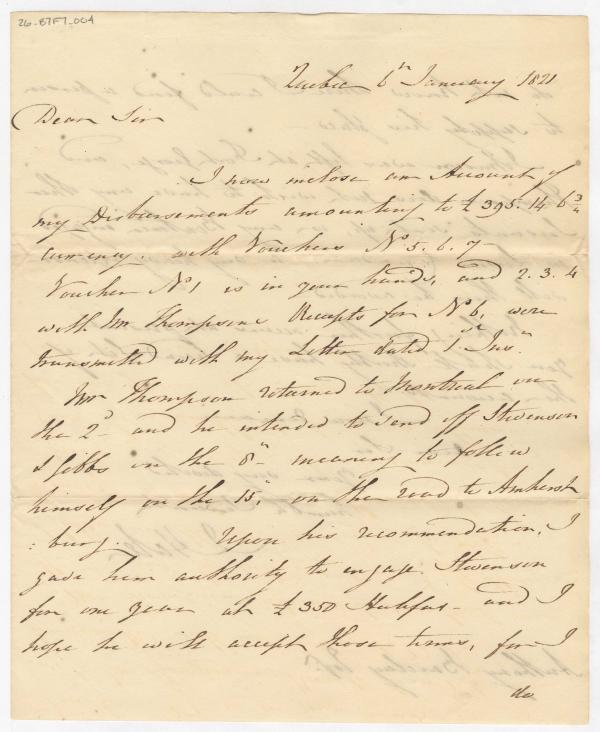 26-B7F7-004
Quebec 6th January 1821
Dear Sir
I now inclose an Account of
my Disbursements amounting to £395.14.6¾
currency. with Vouchers No 5. 6. 7-
Voucher No 1 is in your hands, and 2. 3. 4
with Mr Thompsons Receipts for No 6, were
transmitted with my Letter dated 1st Inst
Mr Thompson returned to Montreal on
the 2d - and he intended to send off Stevenson
& Gibbs on the 8th - meaning to follow
himself on the 15th, on the road to Amherst
:burg. Upon his recommendation, I
gave him authority to engage Stevenson
for one year at £350 Halifax - and I
hope he will accept those terms, for I
do